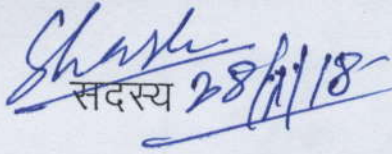 सदस्य 28/11/18